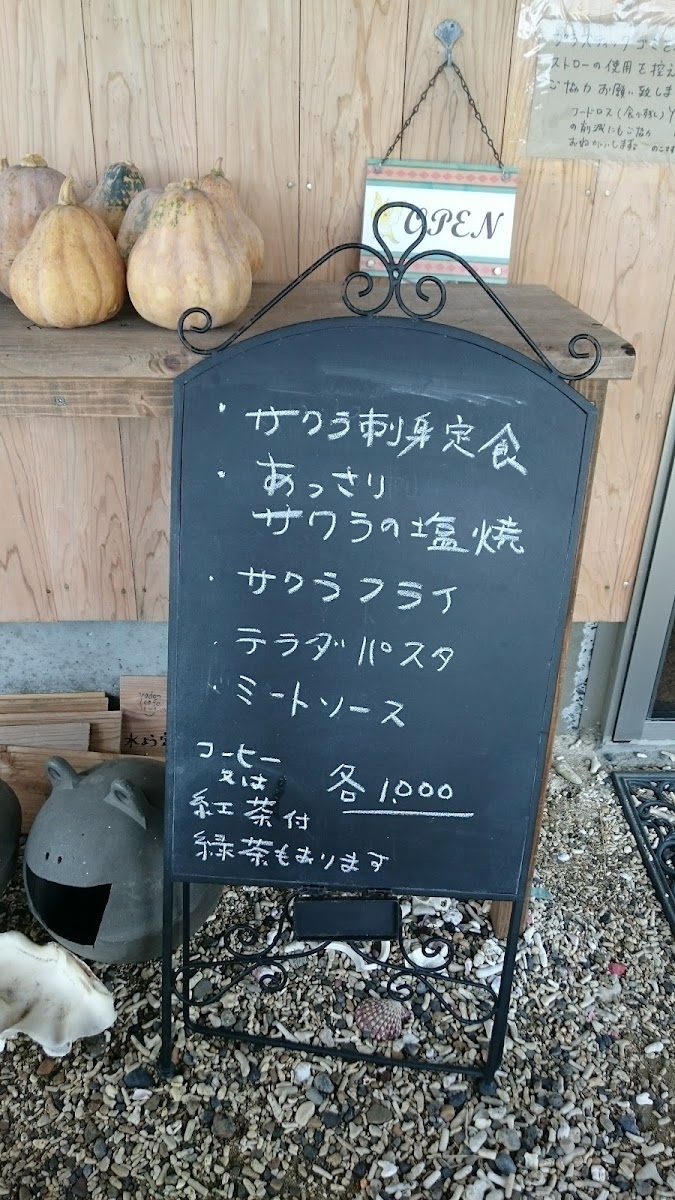 プラスティックゴミを
ストローの使用を控え
ご協力お願い致しま
フードロス(食べ残し)
の削減にもご協力
おねがいします
OPEN
・サワラ刺身定食
・あっさり
サワラの塩焼
・サワラフライ
・テラダパスタ
・ミートソース
コーヒー
又は
紅茶付
各1,000
緑茶もあります